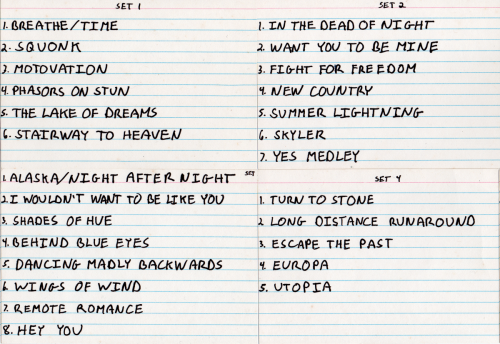 SET 1
1. BREATHE/TIME
2. SQUONK
3. MOTOVATION
4. PHASORS ON STUN
5. THE LAKE OF DREAMS
6. STAIRWAY TO HEAVEN
SET 2
1. IN THE DEAD OF NIGHT
2. WANT YOU TO BE MINE
3. FIGHT FOR FREEDOM
4. NEW COUNTRY
5. SUMMER LIGHTNING
6. SKYLER
7. YES MEDLEY
SET
1. ALASKA/NIGHT AFTER NIGHT
2. I WOULDN'T WANT TO BE LIKE YOU
3. SHADES OF HUE
4. BEHIND BLUE EYES
5. DANCING MADLY BACKWARDS
6. WINGS OF WIND
7. REMOTE ROMANCE
8. HEY YOU
SET 4
1. TURN TO STONE
2. LONG DISTANCE RUNAROUND
3. ESCAPE THE PAST
4. EUROPA
5. UTOPIA